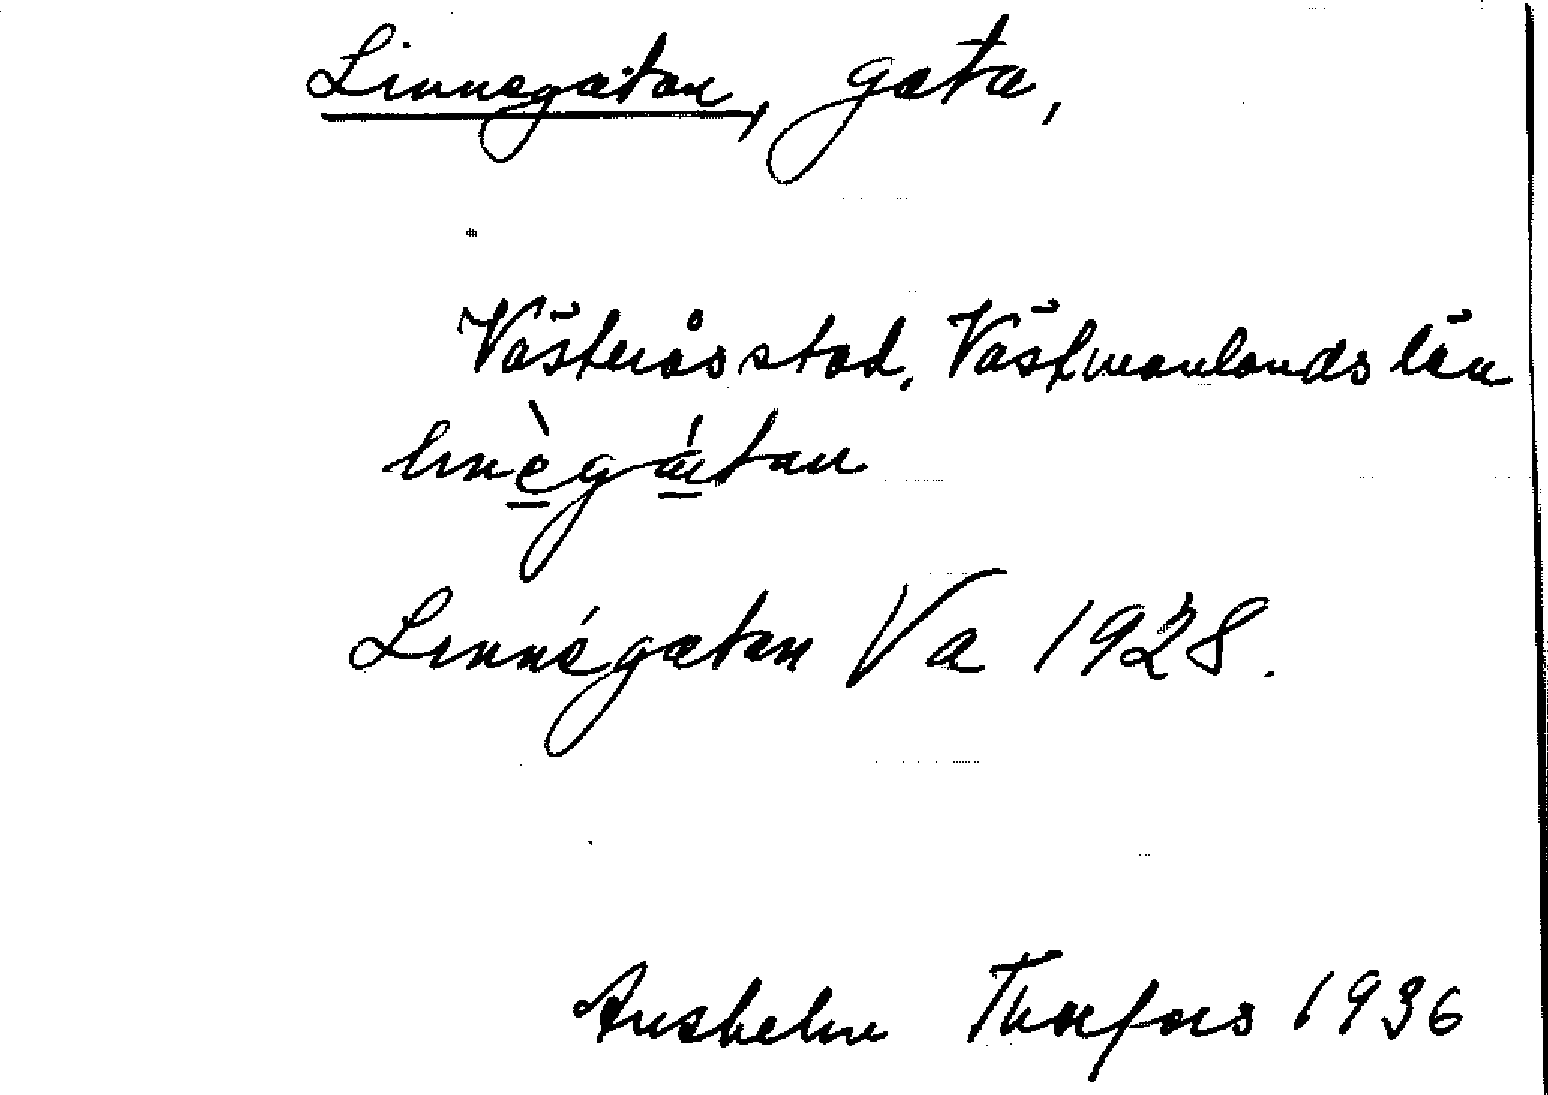 Linnégatan, gata,
Västerås stad, Västmanlands län
linègátan
Linnégatan Va 1928.
Anshelm Thorfors 1936